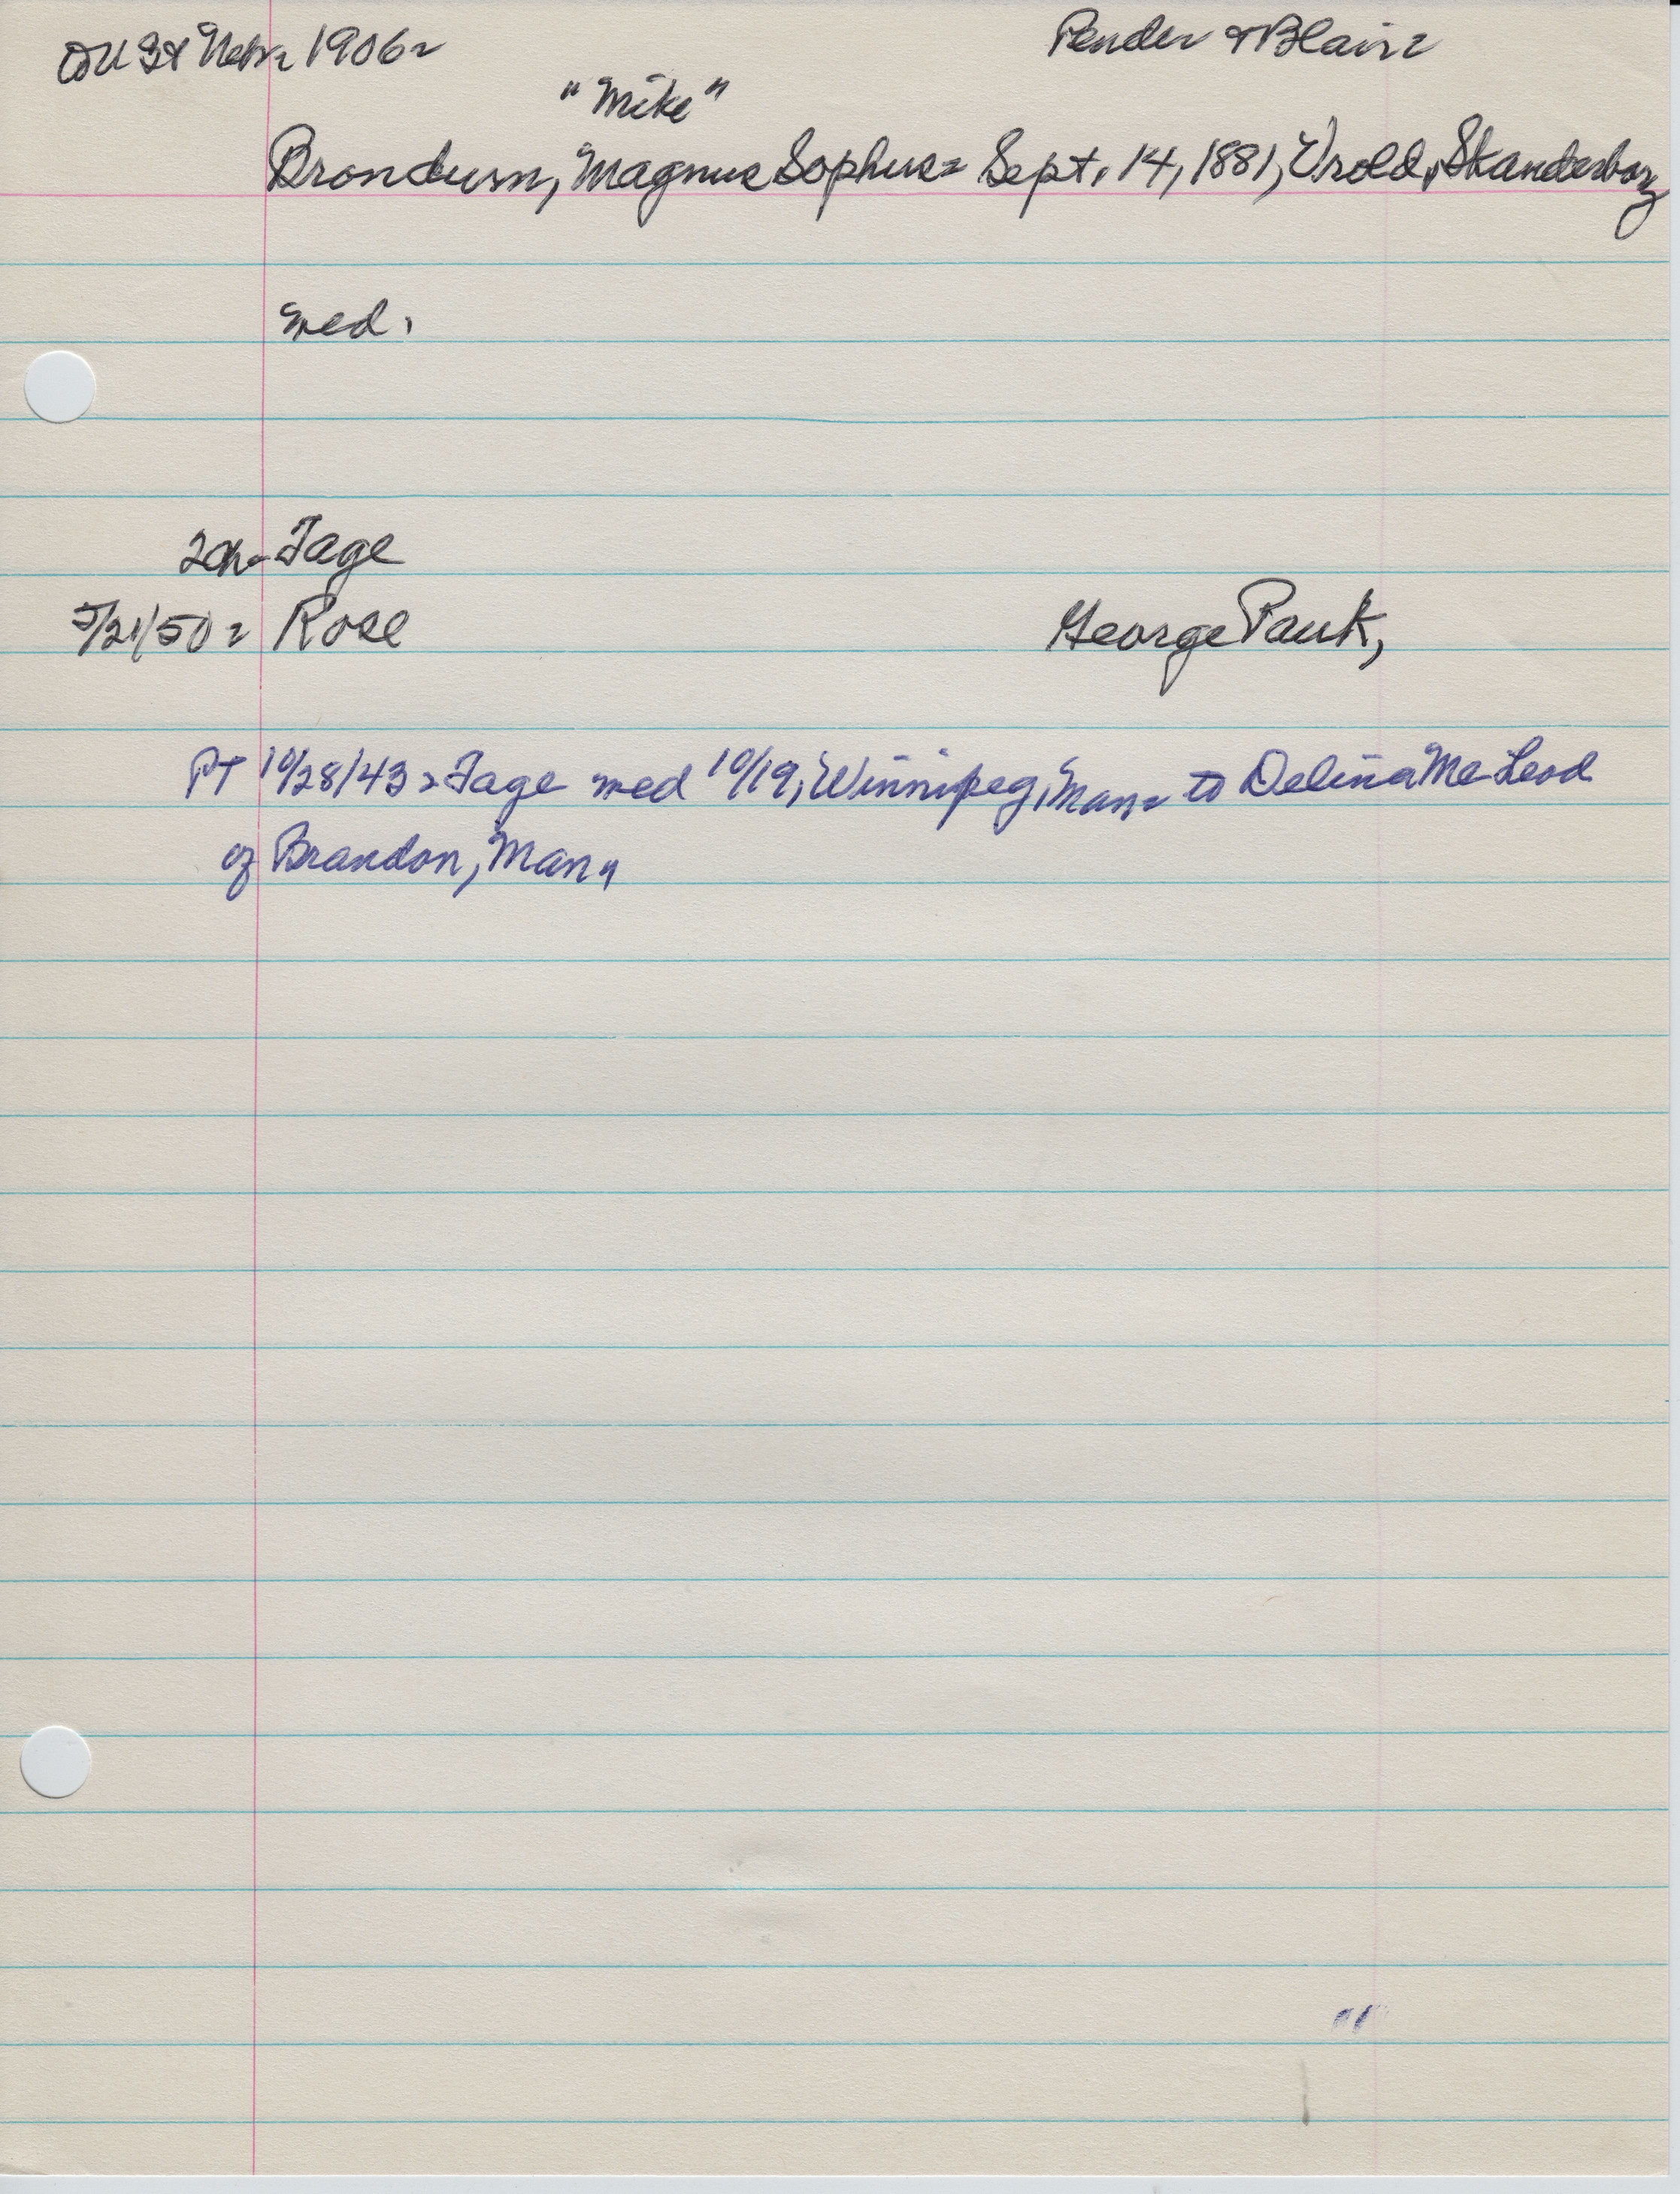 Nebr. 1906- Pender & Blair-
"Mike"
Brondum, Magnus Sophus- Sept. 14, 1881, Vrold, Skanderborg
med.
Tage
5/21/50- Rose George Pauk,
PT 10/28/43- Tage med 10/19, Winnipeg, Man- to Delina McLeod
of Brandon, Man.